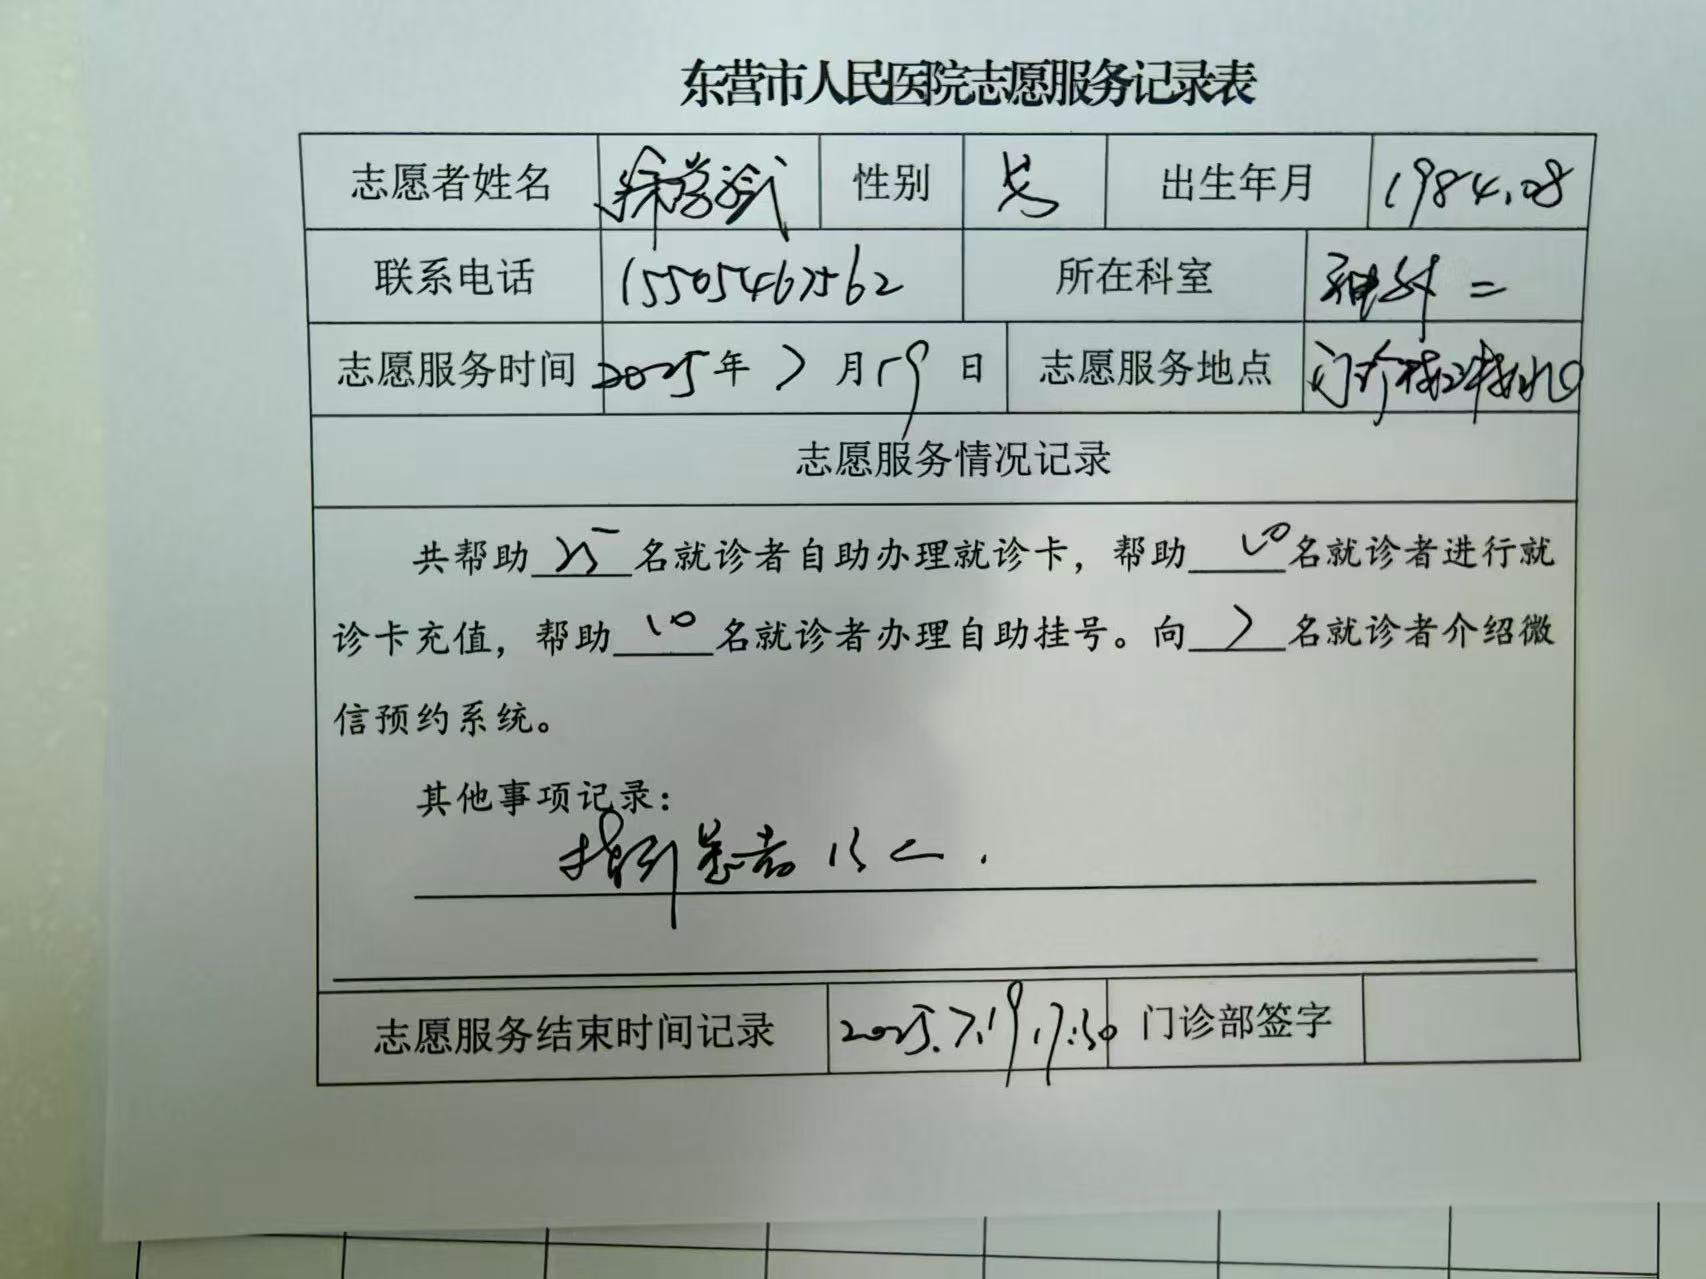 东营市人民医院志愿服务记录表
志愿者姓名 性别 男 出生年月 1984.08
联系电话 15505467562 所在科室 神外二
志愿服务时间 2025年7月19日 志愿服务地点 门诊
志愿服务情况记录
共帮助25名就诊者自助办理就诊卡，帮助10名就诊者进行就
诊卡充值，帮助10名就诊者办理自助挂号。向7名就诊者介绍微
信预约系统。
其他事项记录：
指引患者15人.
志愿服务结束时间记录 2025.7.19 17:30 门诊部签字